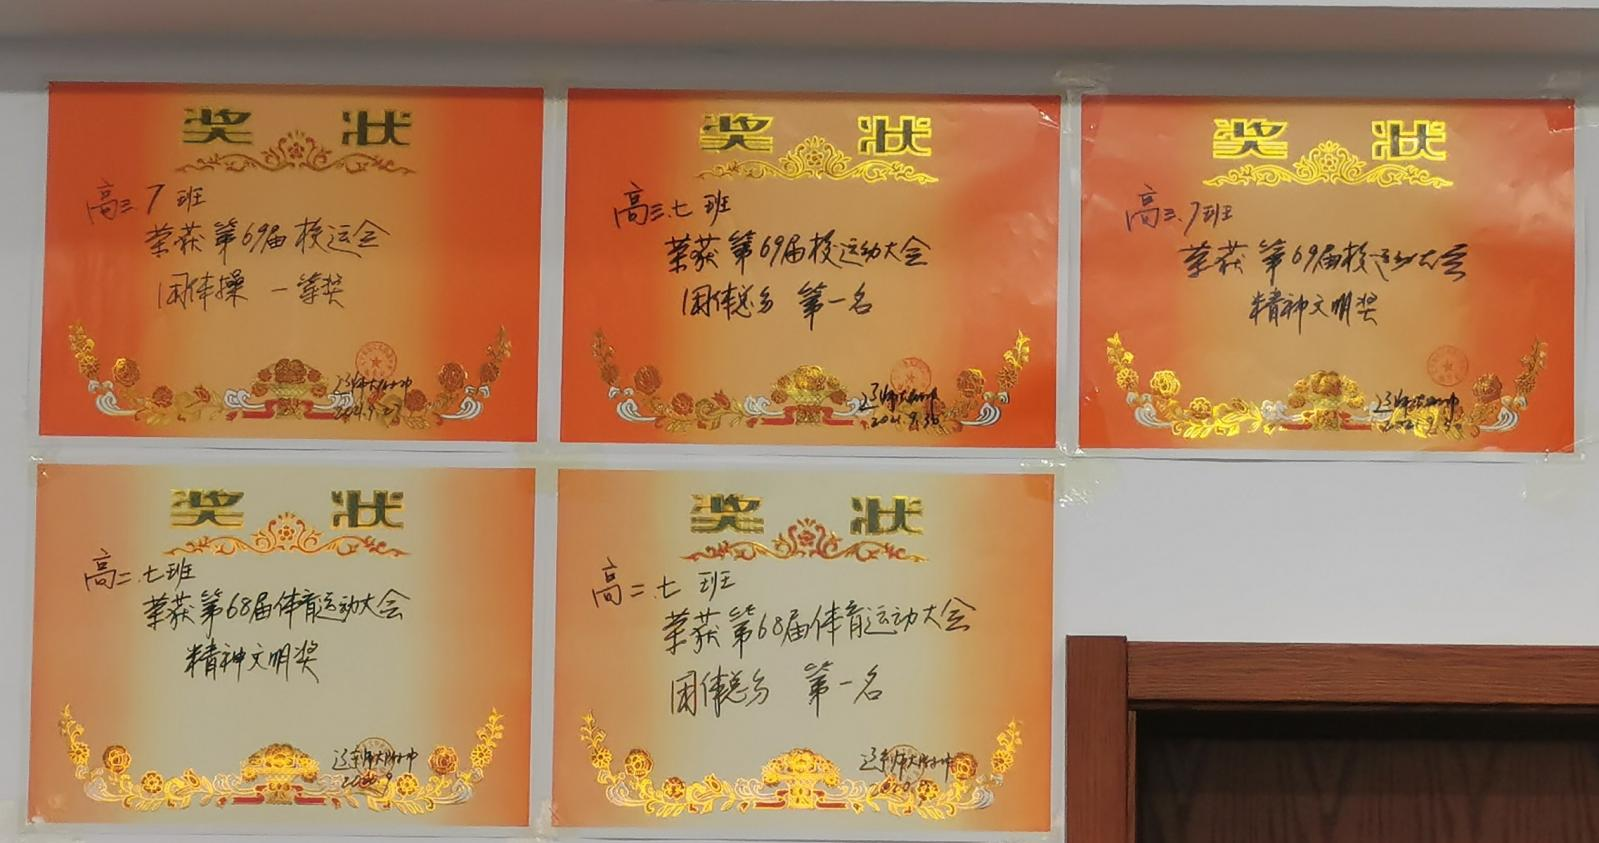 奖状
高三.7班
荣获第69届校运会
团体操 一等奖
辽师大附中
2021.9.27
奖状
高三.七班
荣获第69届校运动大会
团体总分 第一名
辽师大附中
2021.9.30
奖状
高三.7班
荣获第69届校运动大会
精神文明奖
辽师大附中
2021.9.30
奖状
高二.七班
荣获第68届体育运动大会
精神文明奖
辽宁师大附中
2020.9
奖状
高二.七班
荣获第68届体育运动大会
团体总分 第一名
辽宁师大附中
2020.9